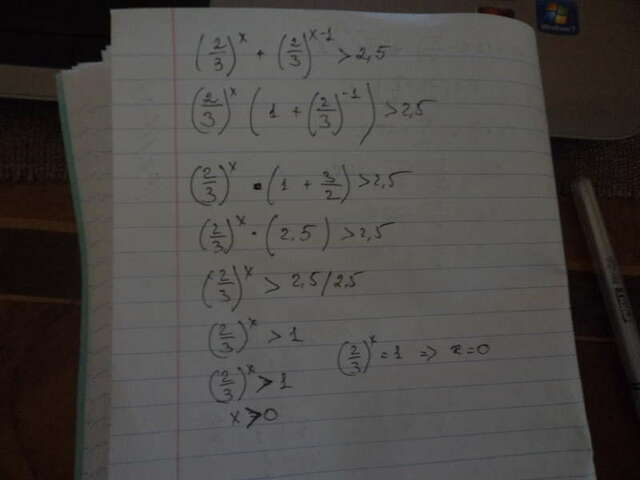 (2/3)^x + (2/3)^(x-1) > 2,5
(2/3)^x (1 + (2/3)^-1) > 2,5
(2/3)^x · (1 + 3/2) > 2,5
(2/3)^x · (2,5) > 2,5
(2/3)^x > 2,5/2,5
(2/3)^x > 1
(2/3)^x = 1 => x=0
(2/3)^x > 1
x > 0